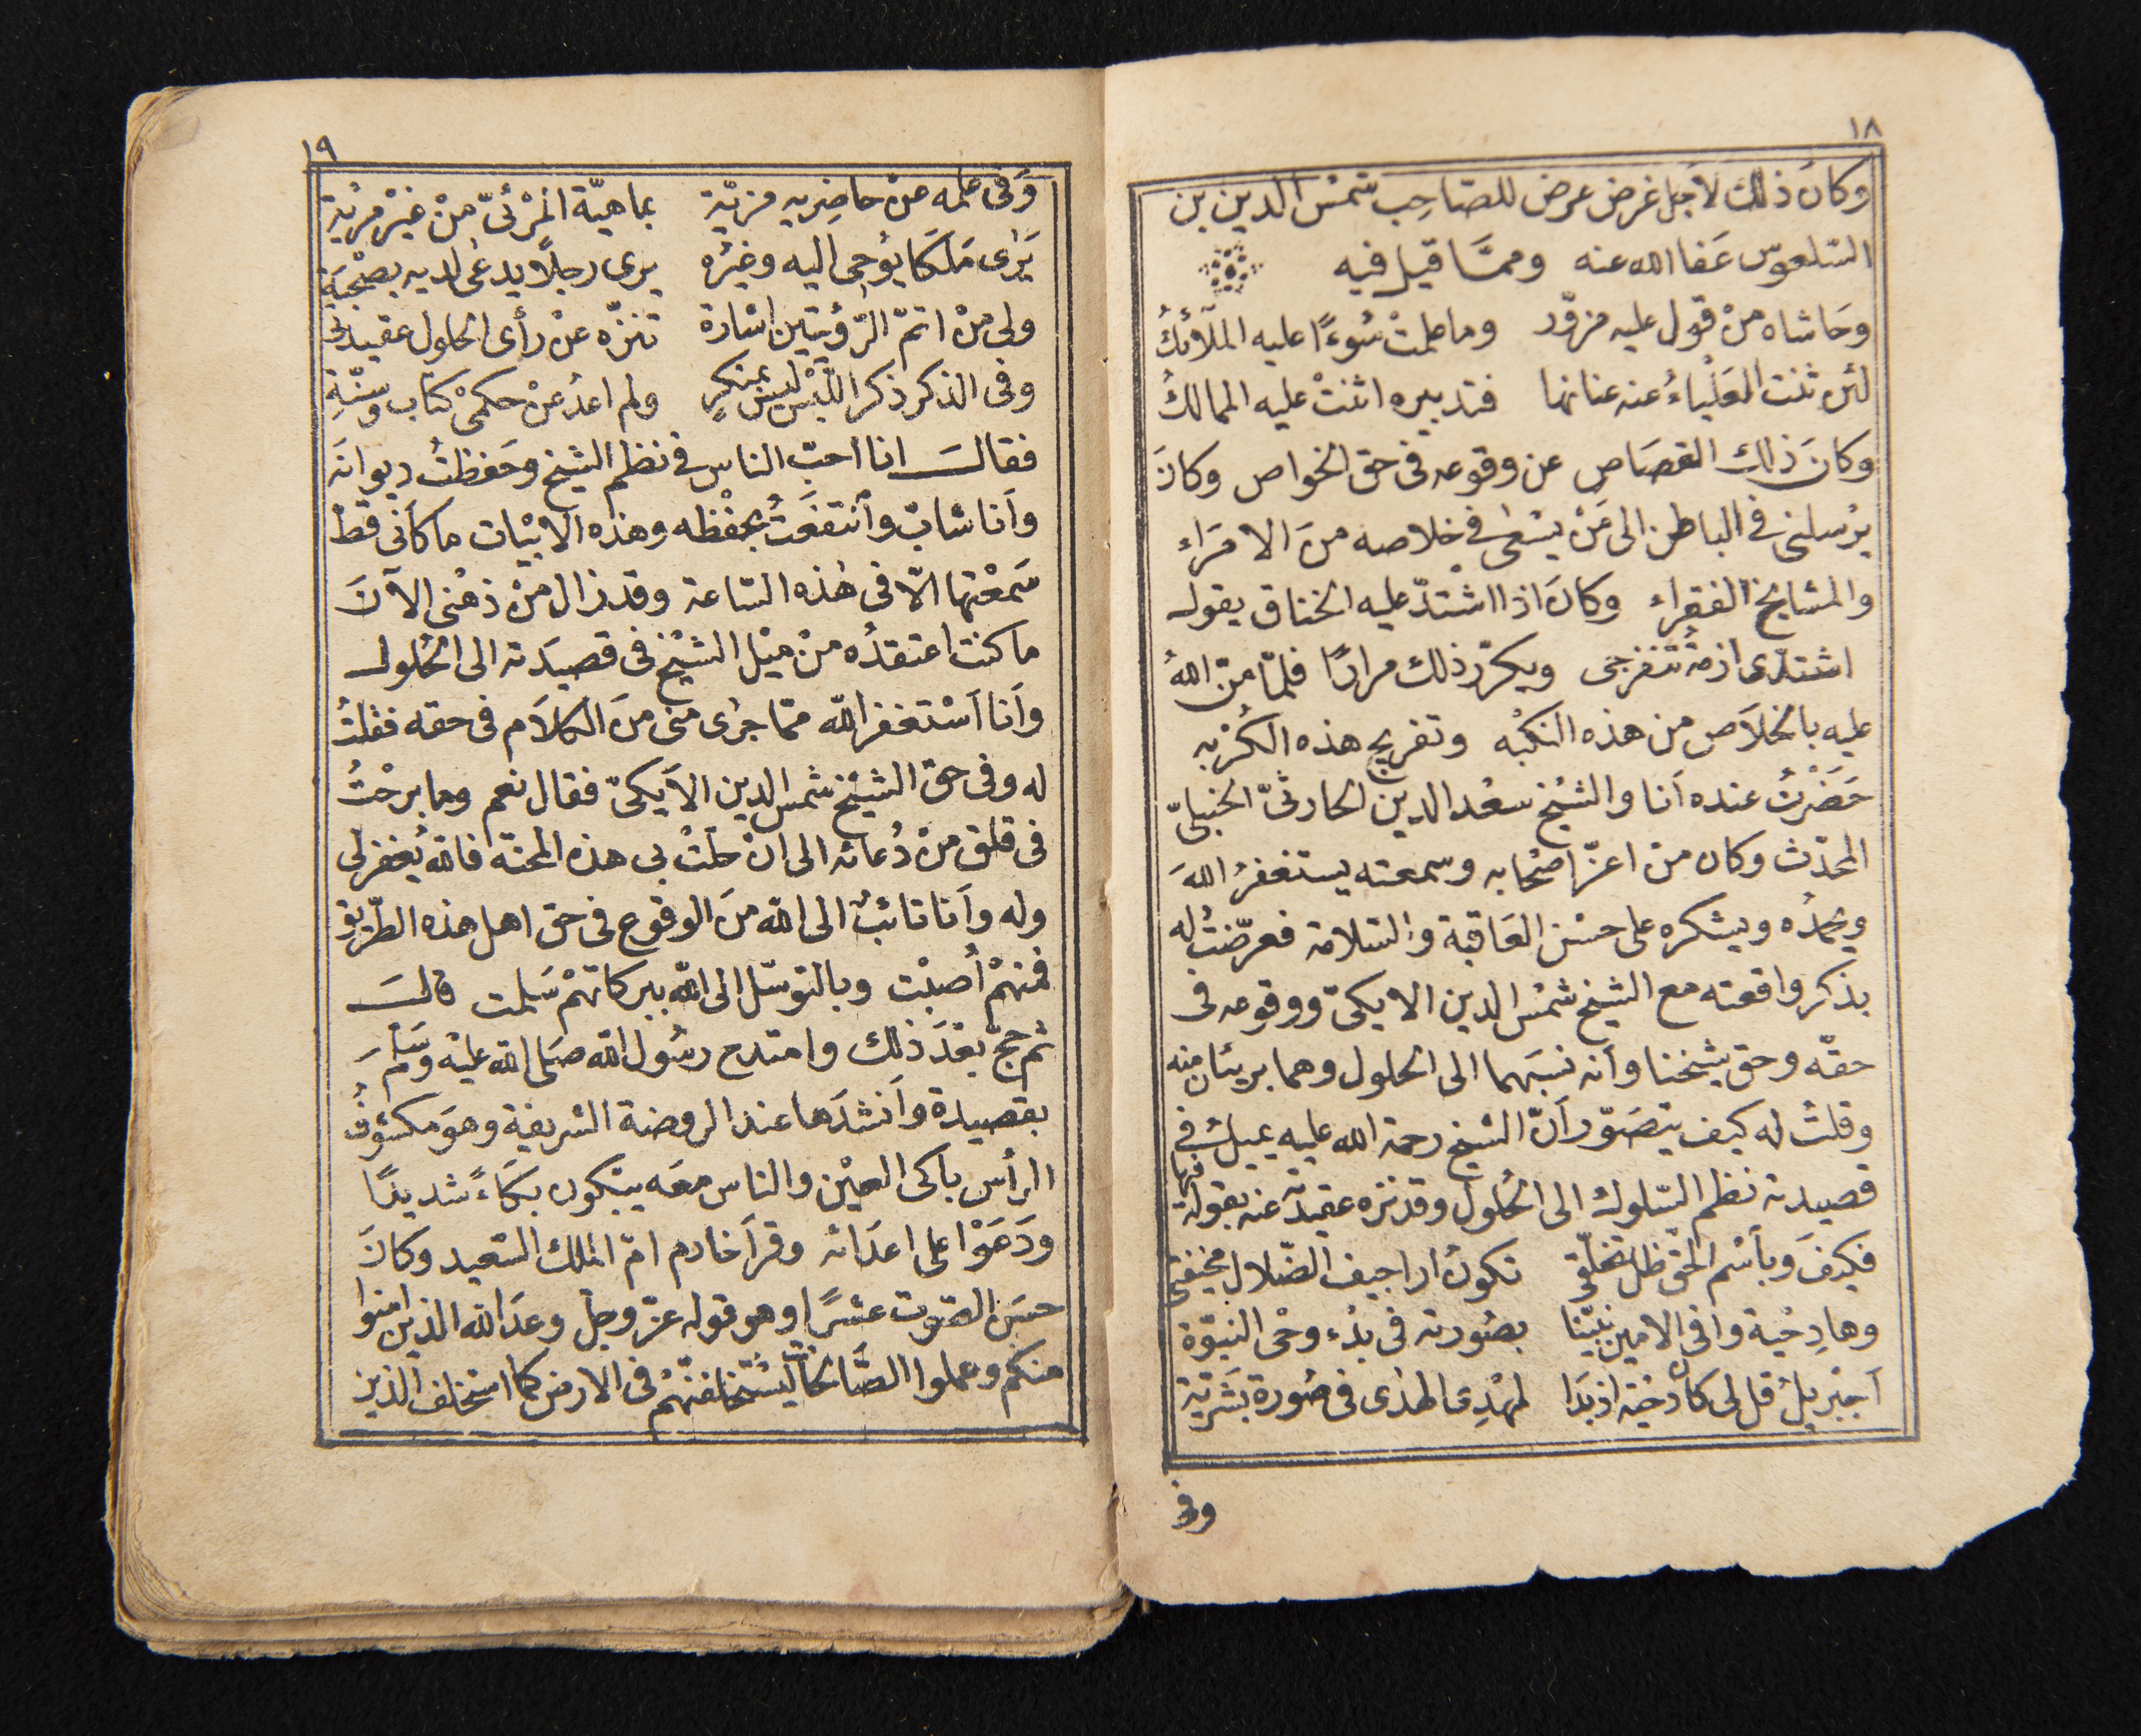 ١٨
وكانَ ذلك لأجل غرض عرض للصّاحِب شمسْ الدين بن
السّلعوسّ عَفا الله عنه ومـمّـا قيل فيه
وحَاشاه منْ قول عليه مزوّر وما علمتْ سُوءًا عليه الملآئكُ
لئن ثنت العَلْياءُ عنه عنانها فتدبيره اثنتْ عليه الممالكُ
وكانَ ذلك القصَاص عن وقوعه فى حق الخواص وكانَ
يرْسلنى فى الباطن الى مَنْ يسْعٰى فى خلاصه منَ الامرَاء
والمشايخ الفقراء وكانَ اذا اشتدّ عليه الخناق يقول
اشتدّى ازمةُ تنفرجى ويكرّر ذلك مرارًا فلمّا منّ اللهُ
عليه بالخلاَص من هذه النكْبه وتفريج هذه الكُرْبه
حَضَرْتُ عنده اَنا والشيْخ سعْد الدين الحارثىّ الحنبلىّ
المحدّث وكان منْ اعزّ اصْحابه وسمعته يستغفرُ اللهَ
ويحمدُه ويشكره على حسْن العَاقبة والسّلامة فعرّضتُ له
بذكر واقعته مع الشيخ شمْس الدين الايكىّ ووقوعه فى
حقّه وحق شيخنا واَنه نسَبهما الى الحلول وهما بريئان منه
وقلتُ له كيف يتصَوّر اَنّ الشيخ رحمة الله عليه يميلُ فى
قصيدته نظم السّلوك الى الحُلول وقد نزه عقيدته عنه بقوله فيها
فكيْفَ وبأسْم الحَق ظل تخلّقى تكونُ اراجيف الضّلال مخيفتى
وها دِحْية وافى الامين نبيّنا بصُورته فى بدْء وحْى النبوّة
اَجبْريلُ قل لى كان دحْية اذ بَدَا لمهْدِى الهدٰى فى صُورة بَشَريّة
وفى
١٩
وَفى علمه عنْ حاضِريه مزيّة بماهيّة المرْئىّ منْ غيْر مرْية
يَرٰى مَلَكَا يوُحى اليه وغيْره يرى رجلاً يدعٰى لديه بصُحْبَة
ولى منْ اتمّ الرّؤيتين اشارة تنزّه عنْ رأى الحلول عقيدتى
وفى الذكر ذكر اللّبْس ليس بمنكرٍ ولم اعدُ عنْ حكمىْ كتاب وسنّةِ
فقالـ انا احبّ الناس فى نظم الشيخ وحَفظتُ ديوانَه
واَنا شابّ وانْتفعَتُ بحفْظه وهذه الابْيات ما كاَنى قطْ
سَمعْتها الاّ فى هٰذه السّاعة وقد زال منْ ذهْنى الآنَ
ما كنت اعتقدُه منْ ميْل الشيْخ فى قصيدَته الى الحُلول
واَنا اَسْتغفر اللّه ممّا جرٰى منى منَ الكلاَم فى حقه فقلتُ
له وفى حق الشيْخ شمس الدين الاَيكىّ فقال نعم وما برحْتُ
فى قلق منْ دُعائه الى ان حلّتْ بى هذه المحنة فالله يُغفر لى
وله واَنا تائبٌ الى الله منَ الوقوع فى حق اهل هذه الطّريق
فمنهمْ اُصبْت وبالتوسّل الى اللّه ببركاتهمْ سَلمت قالـ
ثم حجّ بعْدَ ذلك وامتدح رسُول اللّه صَلى الله عليْه وسَلَّمَ
بقصيدة واَنشدَها عند الروضة الشريفة وهوَ مكشُوفُ
الرأس باكى العيْن والناس معَه يبْكون بكَاءً شديدًا
ودَعَوْا على اعدَائه وقرأَ خادم امّ الملك السّعيد وكانَ
حسَن الصّوت عشرًا وهو قوله عزّ وجلّ وعدَ اللّه الذين امنوا
منكم وعملوا الصّالحات ليسْتخلفنّهمْ فى الارض كما استخلف الذين